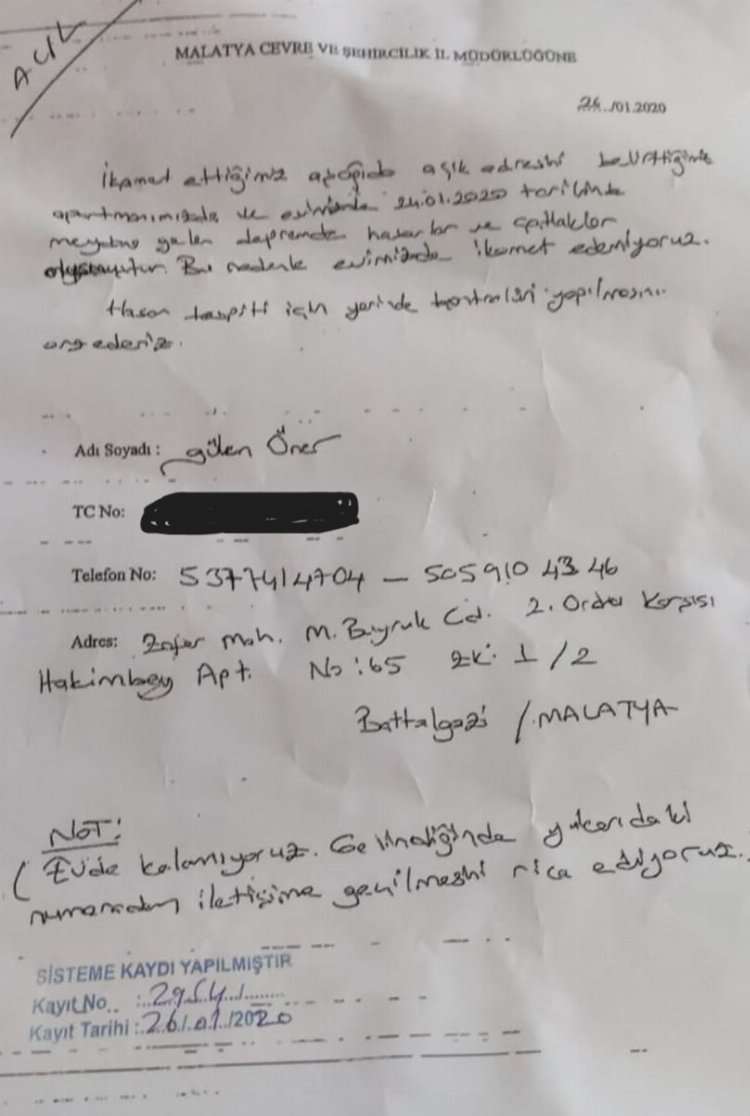 ACİL
MALATYA ÇEVRE VE ŞEHİRCİLİK İL MÜDÜRLÜĞÜNE
26../01.2020
İkamet ettiğimiz aşağıda açık adresini belirttiğimiz
apartmanımızda ve evimizde 24.01.2020 tarihinde
meydana gelen depremde hasarlar ve çatlaklar
oluşmuştur. Bu nedenle evimizde ikamet edemiyoruz.
Hasar tespiti için yerinde kontrolün yapılmasını
arz ederiz.
Adı Soyadı : Gülen Öner
TC No:
Telefon No: 5377414704 – 505 910 43 46
Adres: Zafer Mah. M. Buyruk Cd. 2. Ordu Karşısı
Hakimbey Apt. No:65 K: 1/2
Battalgazi /MALATYA
NOT:
( Evde kalamıyoruz. Gelindiğinde yukarıdaki
numaradan iletişime geçilmesini rica ediyoruz.
SİSTEME KAYDI YAPILMIŞTIR
Kayıt No :..2954./.......
Kayıt Tarihi :.26/.01./2020